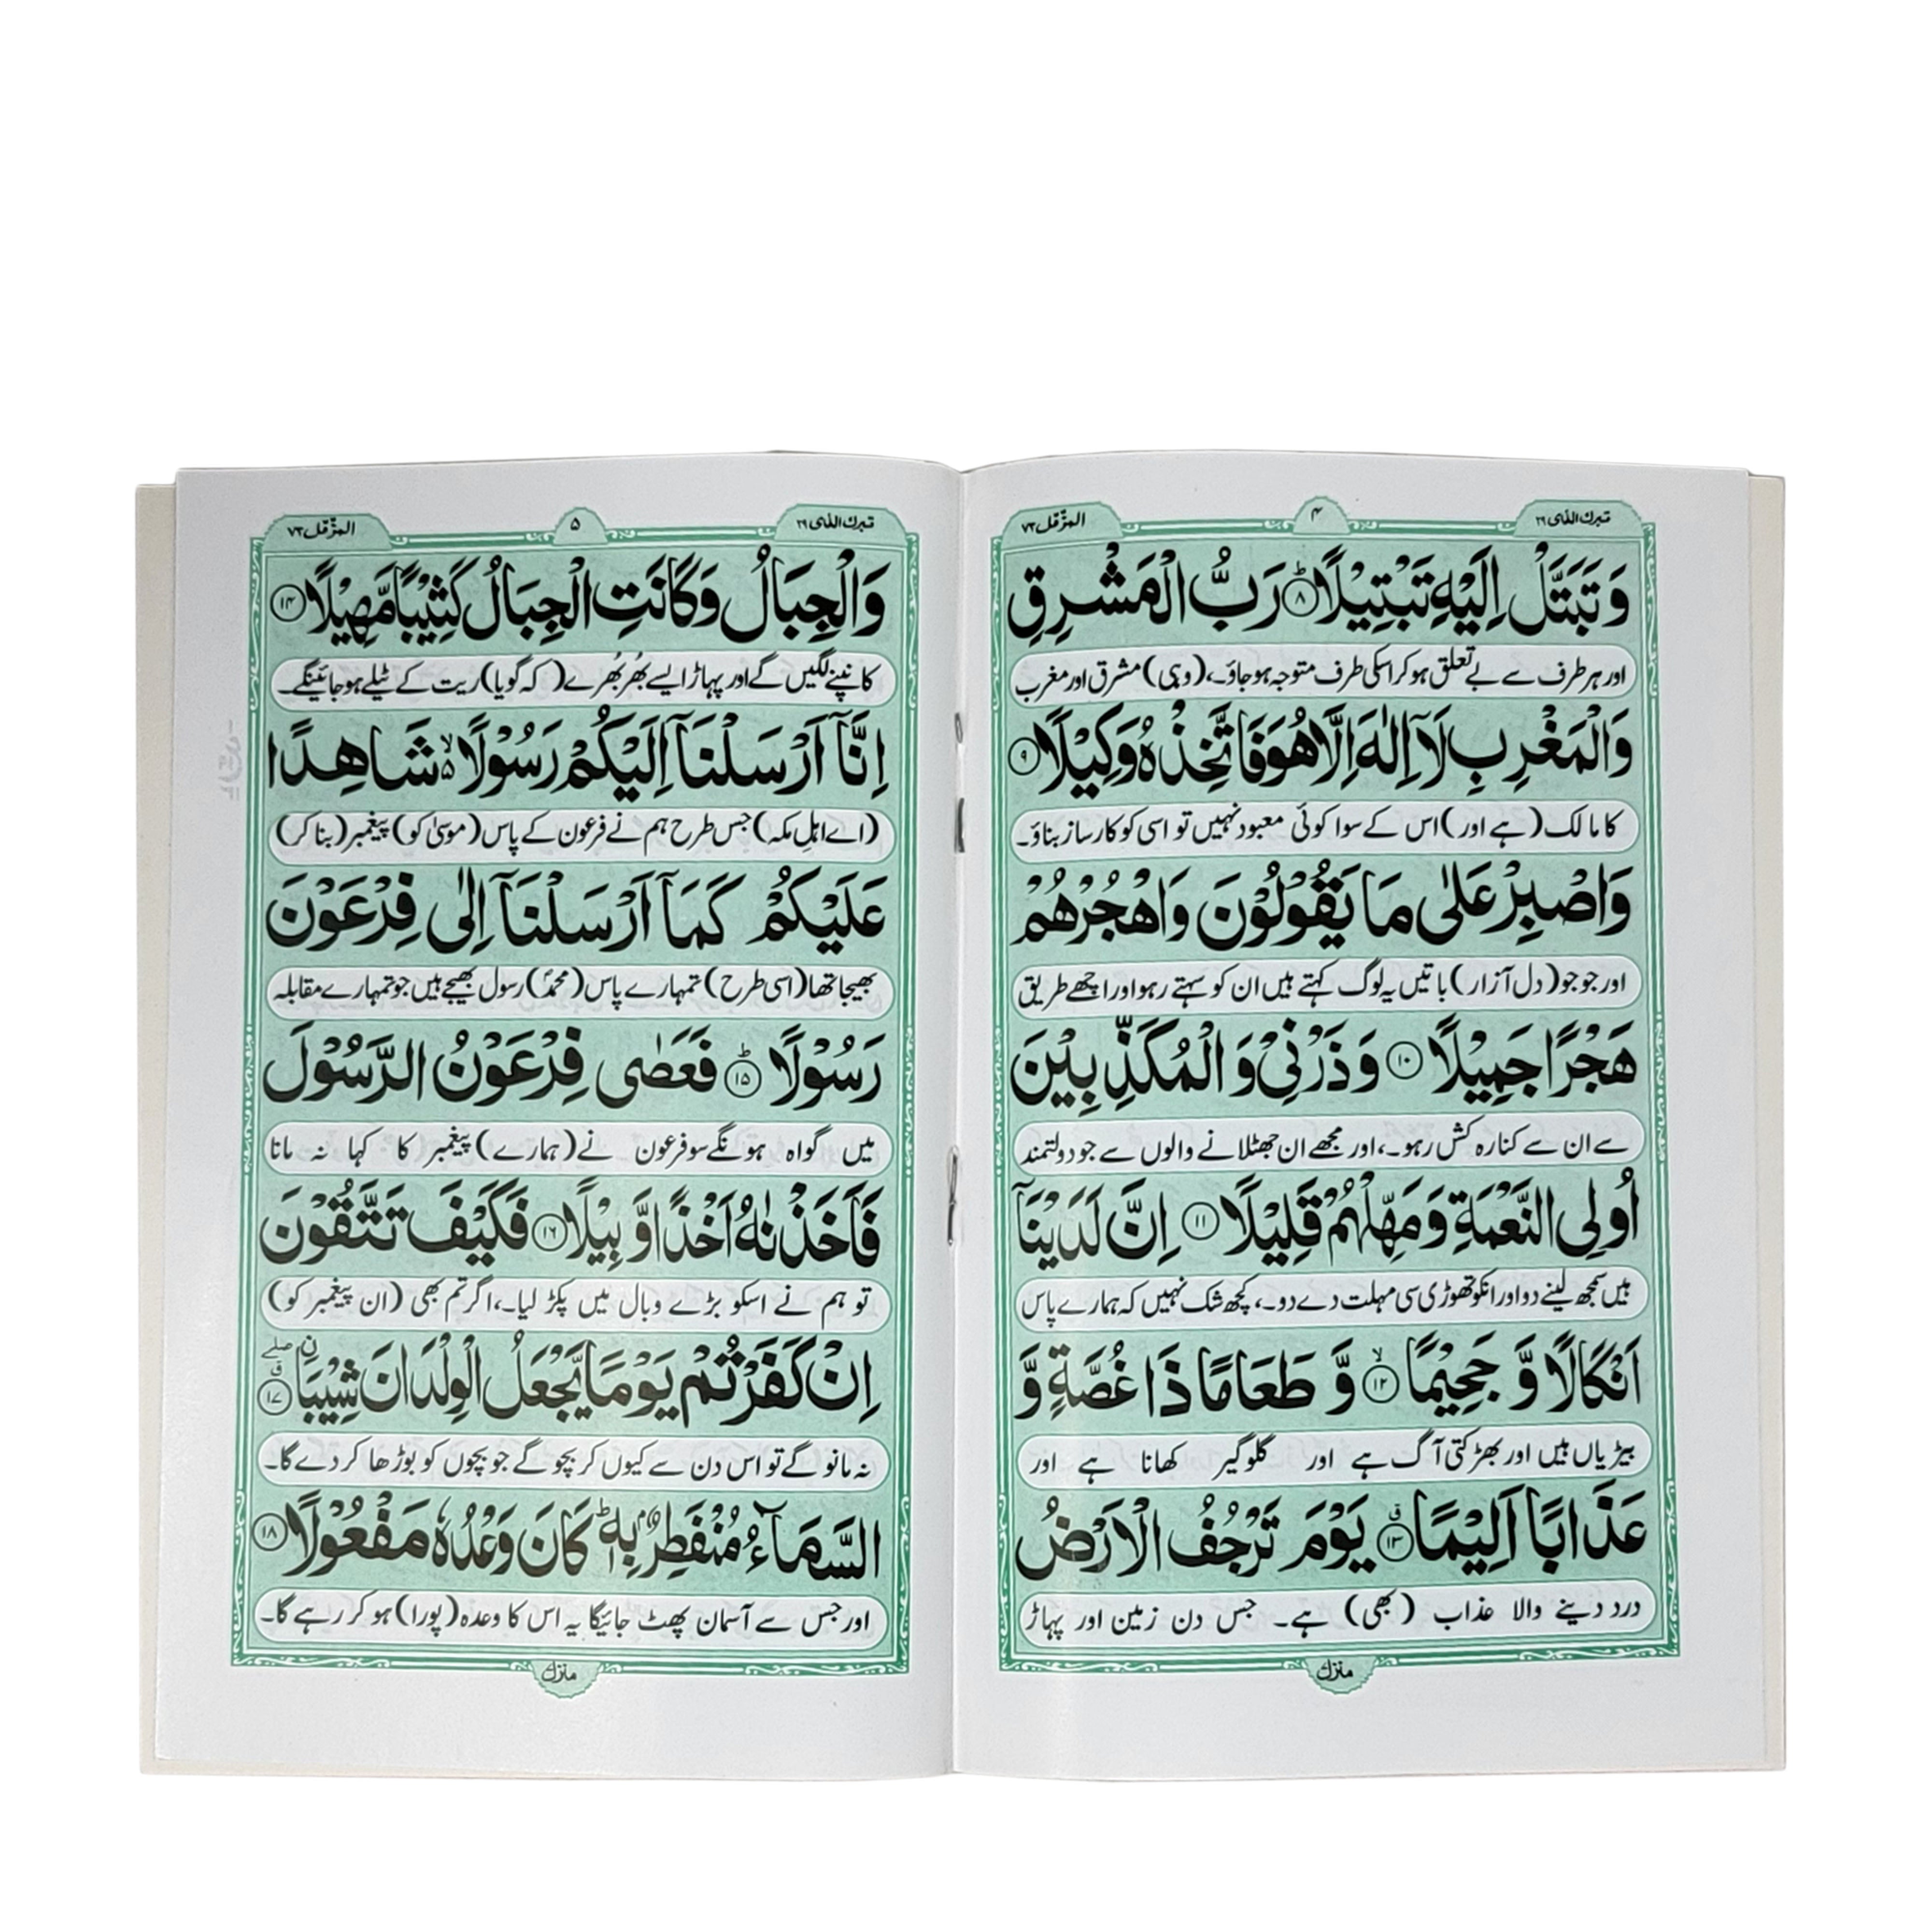 تبرك الذی ۲۹
۴
المزّمّل ۷۳
وَتَبَتَّلْ اِلَيْهِ تَبْتِيْلًا ؕ۸ رَبُّ الْمَشْرِقِ
اور ہر طرف سے بے تعلق ہو کر اسکی طرف متوجہ ہو جاؤ۔، (وہی) مشرق اور مغرب
وَالْمَغْرِبِ لَاۤ اِلٰهَ اِلَّا هُوَ فَاتَّخِذْهُ وَكِيْلًا ۹
کا مالک (ہے اور) اس کے سوا کوئی معبود نہیں تو اسی کو کارساز بناؤ۔
وَاصْبِرْ عَلٰى مَا يَقُوْلُوْنَ وَاهْجُرْهُمْ
اور جو جو (دل آزار) باتیں یہ لوگ کہتے ہیں ان کو سہتے رہو اور اچھے طریق
هَجْرًا جَمِيْلًا ۱۰ وَذَرْنِيْ وَالْمُكَذِّبِيْنَ
سے ان سے کنارہ کش رہو۔، اور مجھے ان جھٹلانے والوں سے جو دولتمند
اُولِى النَّعْمَةِ وَمَهِّلْهُمْ قَلِيْلًا ۱۱ اِنَّ لَدَيْنَاۤ
ہیں سمجھ لینے دو اور انکو تھوڑی سی مہلت دے دو۔، کچھ شک نہیں کہ ہمارے پاس
اَنْكَالًا وَّ جَحِيْمًا ۙ۱۲ وَّ طَعَامًا ذَا غُصَّةٍ وَّ
بیڑیاں ہیں اور بھڑکتی آگ ہے اور گلوگیر کھانا ہے اور
عَذَابًا اَلِيْمًا ۱۳ يَوْمَ تَرْجُفُ الْاَرْضُ
درد دینے والا عذاب (بھی) ہے۔ جس دن زمین اور پہاڑ
منزل
تبرك الذی ۲۹
۵
المزّمّل ۷۳
وَالْجِبَالُ وَكَانَتِ الْجِبَالُ كَثِيْبًا مَّهِيْلًا ۱۴
کانپنے لگیں گے اور پہاڑ ایسے بھُر بھُرے (کہ گویا) ریت کے ٹیلے ہو جائینگے۔
اِنَّاۤ اَرْسَلْنَاۤ اِلَيْكُمْ رَسُوْلًا ۙ۬ شَاهِدًا
(اے اہلِ مکہ) جس طرح ہم نے فرعون کے پاس (موسیٰ کو) پیغمبر (بنا کر)
عَلَيْكُمْ كَمَاۤ اَرْسَلْنَاۤ اِلٰى فِرْعَوْنَ
بھیجا تھا (اسی طرح) تمہارے پاس (محمدؐ) رسول بھیجے ہیں جو تمہارے مقابلہ
رَسُوْلًا ؕ۱۵ فَعَصٰى فِرْعَوْنُ الرَّسُوْلَ
میں گواہ ہونگے سو فرعون نے (ہمارے) پیغمبر کا کہا نہ مانا
فَاَخَذْنٰهُ اَخْذًا وَّبِيْلًا ۱۶ فَكَيْفَ تَتَّقُوْنَ
تو ہم نے اسکو بڑے وبال میں پکڑ لیا۔، اگر تم بھی (ان پیغمبر کو)
اِنْ كَفَرْتُمْ يَوْمًا يَّجْعَلُ الْوِلْدَانَ شِيْبَاۨ ۱۷
نہ مانو گے تو اس دن سے کیوں کر بچو گے جو بچوں کو بوڑھا کر دے گا۔
السَّمَآءُ مُنْفَطِرٌۢ بِهٖؕ كَانَ وَعْدُهٗ مَفْعُوْلًا ۱۸
اور جس سے آسمان پھٹ جائیگا یہ اس کا وعدہ (پورا) ہو کر رہے گا۔
منزل